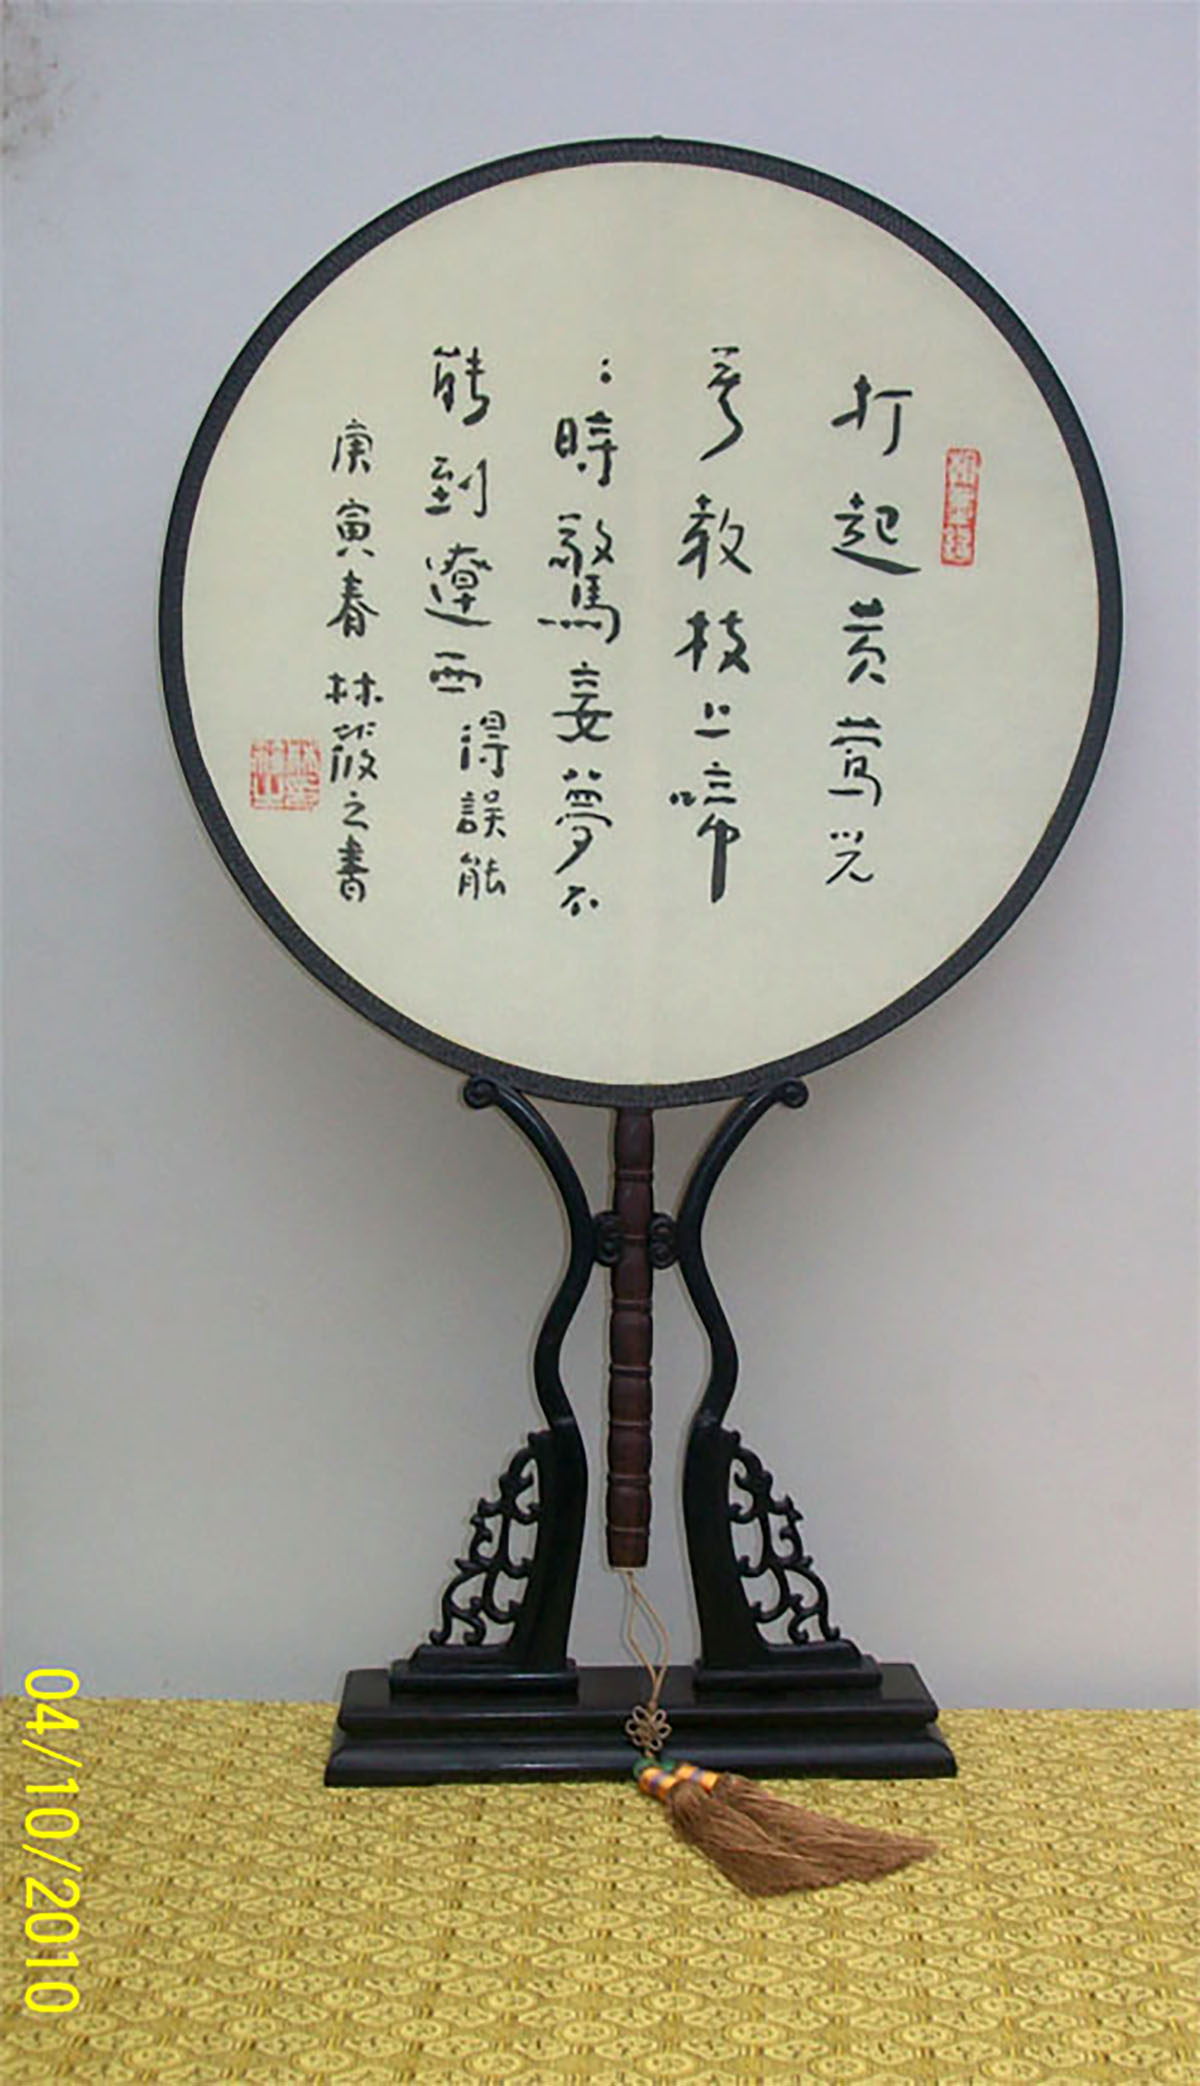 打起黄莺兒
莫教枝上啼
：時驚妾夢不
能到遼西
得誤能
庚寅春林筱之書
04/10/2010